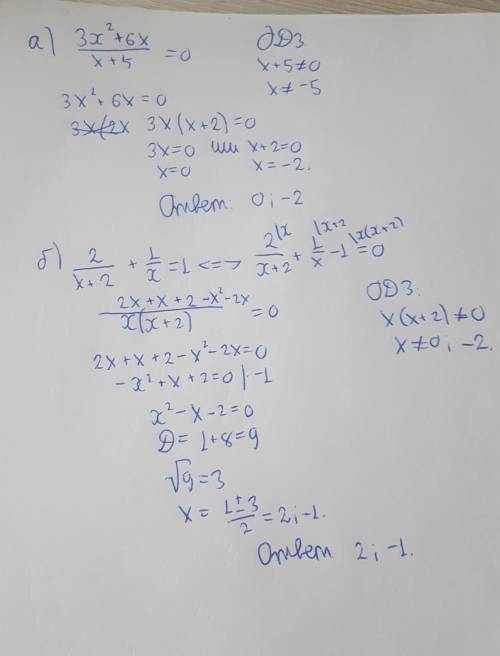 а) (3x²+6x)/(x+5) = 0
ОДЗ
x+5≠0
x≠-5
3x²+6x=0
3x(2x 3x(x+2)=0
3x=0 или x+2=0
x=0 x=-2.
Ответ: 0; -2
б) 2/(x+2) + 1/x = 1 <=> 2\x/(x+2) + 1\x+2/x - 1\x(x+2) = 0
(2x+x+2-x²-2x)/(x(x+2)) = 0
ОДЗ.
x(x+2)≠0
x≠0; -2.
2x+x+2-x²-2x=0
-x²+x+2=0 |·-1
x²-x-2=0
D=1+8=9
√9=3
x= (1±3)/2 = 2; -1.
Ответ 2; -1.